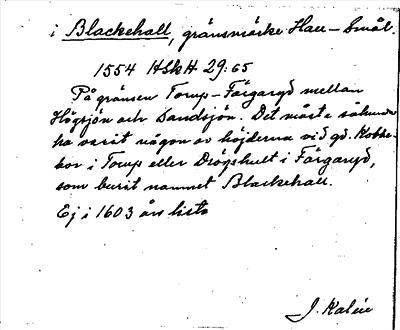 i Blackehall, gränsmärke Hall-Smål.
1554 HSkH 29:65
På gränsen Torup-Färgaryd mellan
Högsjön och Sandsjön. Det måste säkert
ha varit någon av höjderna vid gd. Kobbe-
kor i Torup eller Drögshult i Färgaryd,
som burit namnet Blackehall.
Ej i 1603 års lista
J. Kalén